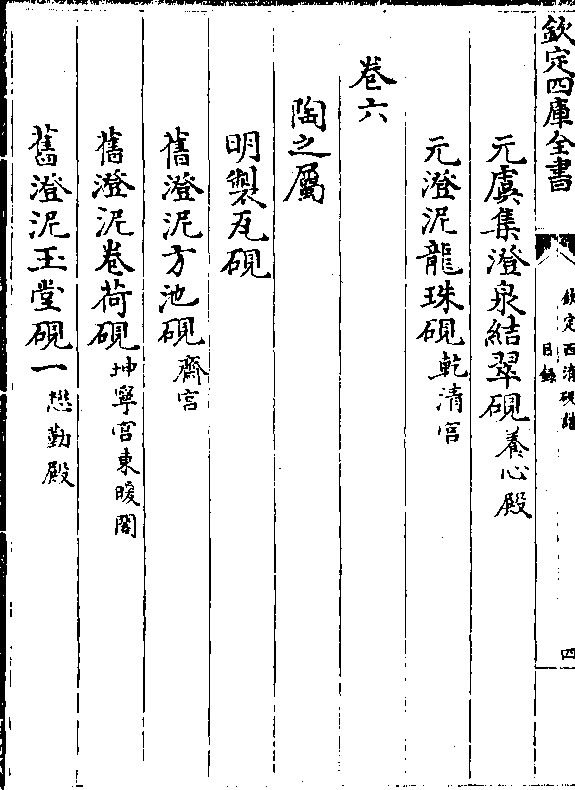 欽定四庫全書
欽定西清硯譜
目錄
四
元虞集澄泉結翠硯 養心殿
元澄泥龍珠硯 乾清宫
卷六
陶之屬
明製瓦硯
舊澄泥方池硯 齋宫
舊澄泥卷荷硯 坤寧宫東暖閣
舊澄泥玉堂硯一 懋勤殿